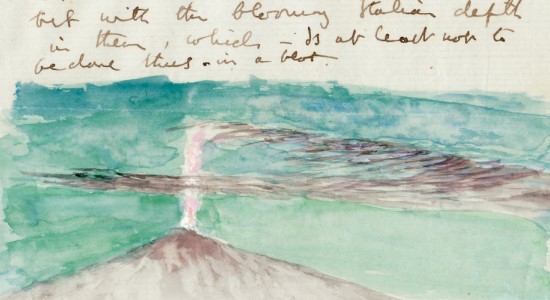 but with the blooming Italian depth
in them, which - is at least not to
be done thus - in a blot.